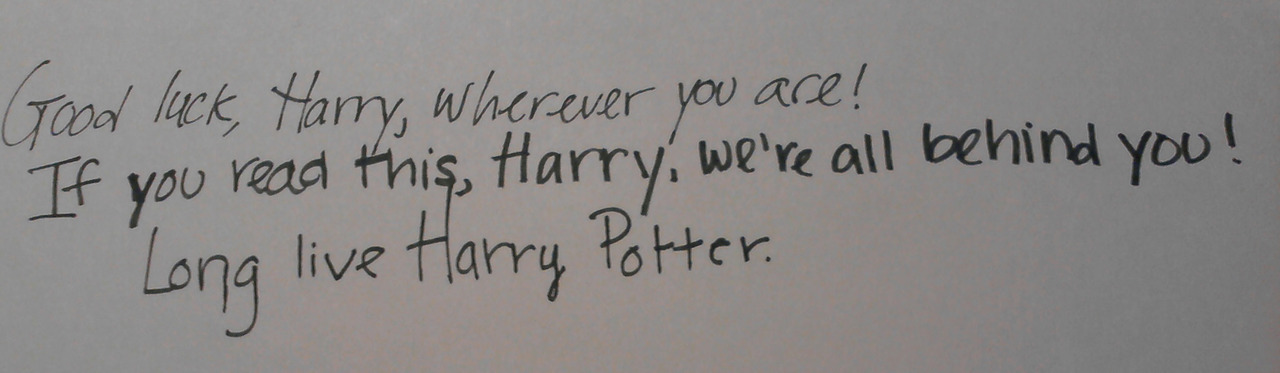 Good luck, Harry, wherever you are!
If you read this, Harry, we're all behind you!
Long live Harry Potter.